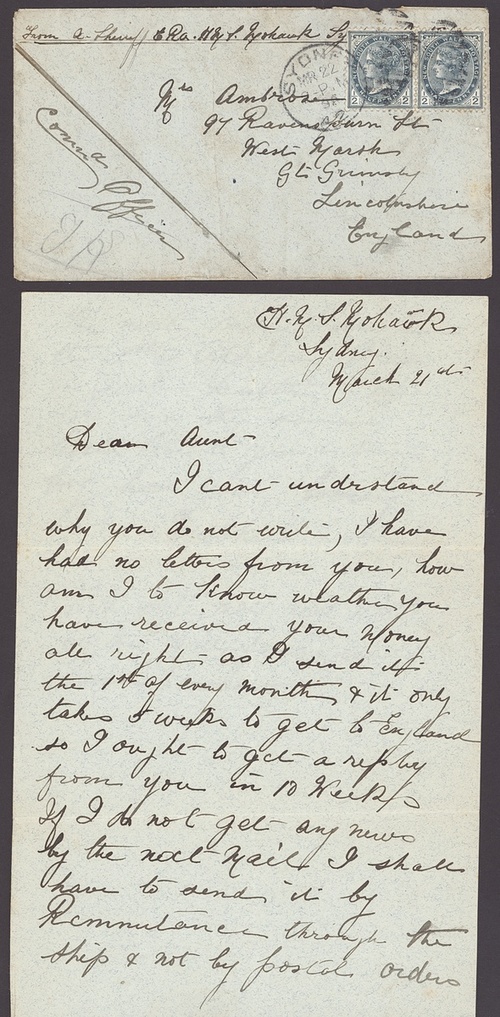 From A. Sherriff E.R.a. H.M.S. Mohawk Sy
SYDNEY
MR 22
Mrs Ambrose
97 Ravensbourn St
West Marsh
Gt Grimsby
Lincolnshire
England
Comdg Officer
H.M.S. Mohawk
Sydney.
March 21st
Dear Aunt
I cant understand
why you do not write, I have
had no letters from you, how
am I to know weather you
have received your Money
all right as I send it
the 1st of every month & it only
takes 5 weeks to get to England
so I ought to get a reply
from you in 10 Weeks
If I do not get any news
by the next Mail I shall
have to send it by
Remmutance through the
ship & not by postal orders